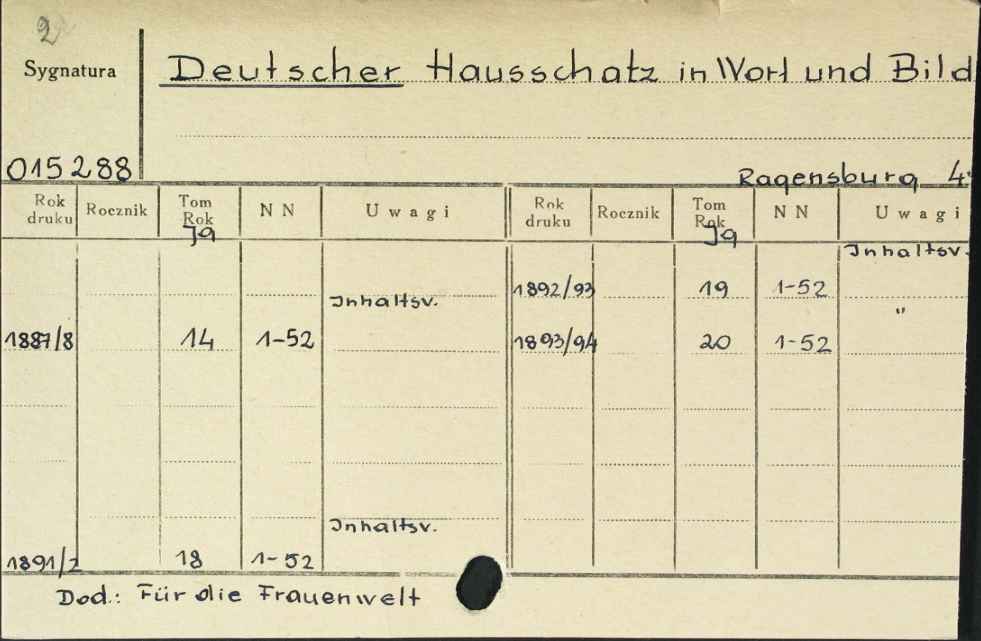 2
Sygnatura
Deutscher Hausschatz in Wort und Bild
015288
Ragensburg 4°
Rok druku Rocznik Tom Rok NN Uwagi Rok druku Rocznik Tom Rok NN Uwagi
Jg Jg
Inhaltsv.
1892/93 19 1-52
Inhaltsv.
"
1887/8 14 1-52 1893/94 20 1-52
Inhaltsv.
1891/2 18 1-52
Dod.: Für die Frauenwelt